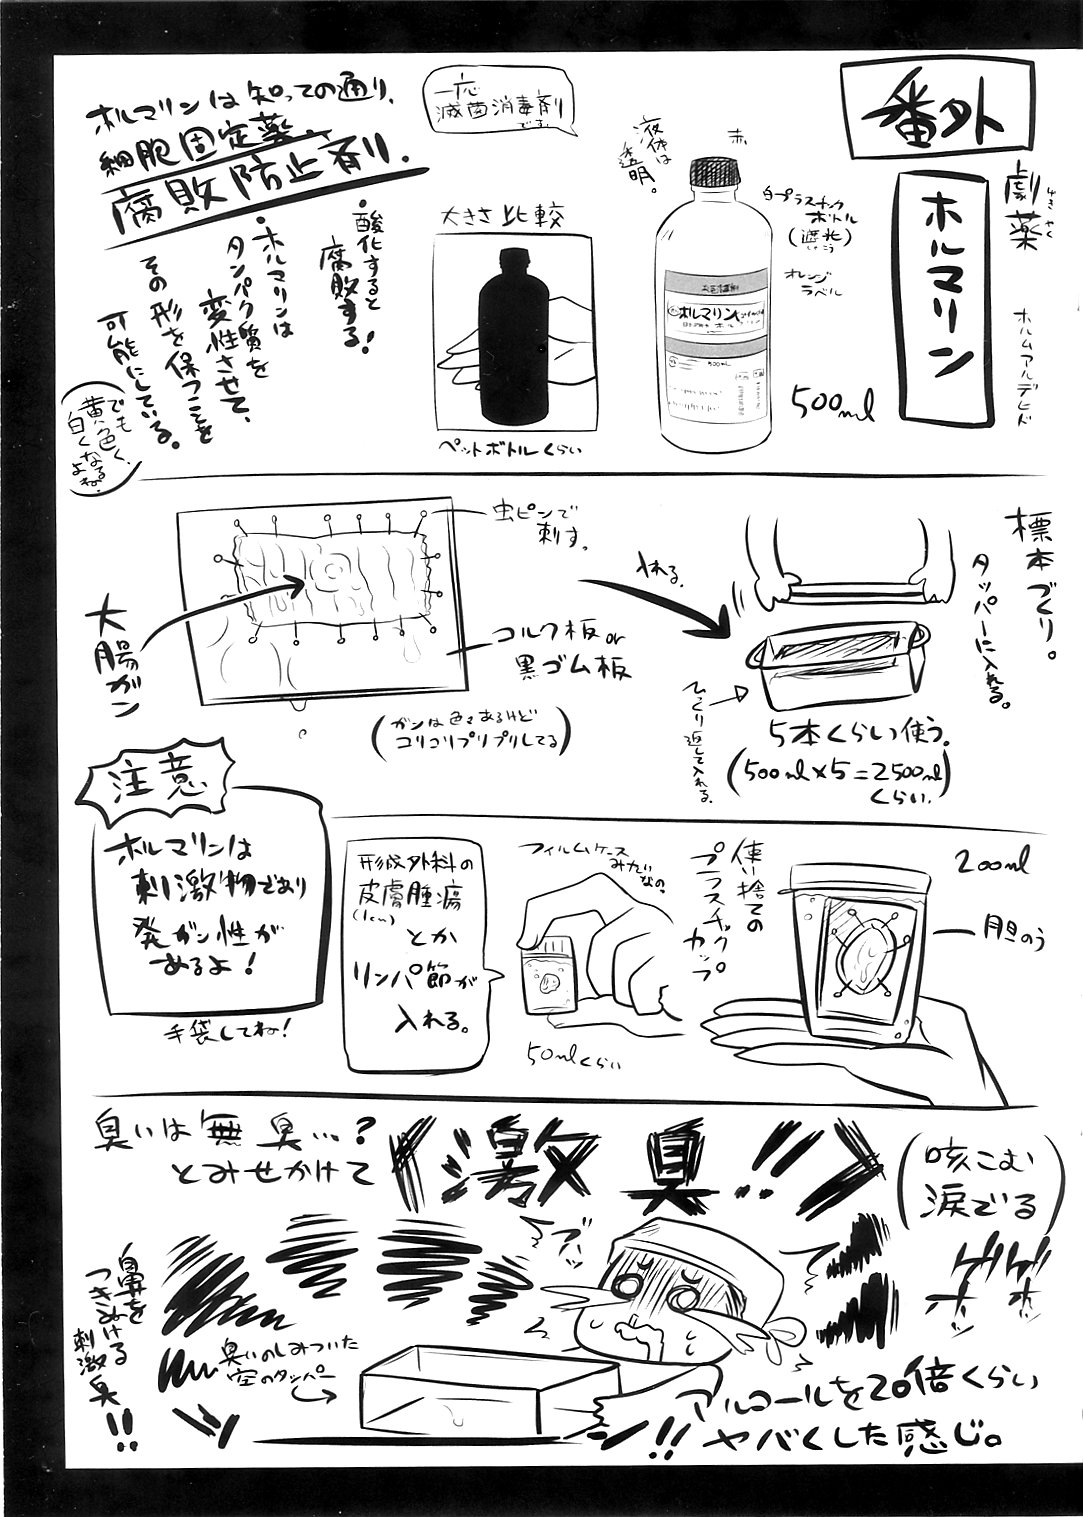 番外
劇薬
げきやく
ホルマリン
ホルムアルデヒド
赤
液体は
透明。
白プラスチック
ボトル
(遮光)
しゃこう
オレンジ
ラベル
ホルマリン
500mL
500ml
一応
滅菌消毒剤
です。
大きさ比較
ペットボトルくらい
ホルマリンは知っての通り、
細胞固定薬
腐敗防止剤。
・酸化すると
腐敗する!
・ホルマリンは
タンパク質を
変性させて、
その形を保つことを
可能にしている。
でも
黄色く、
白くなる
よね。
標本づくり。
タッパーに入れる。
入れる。
ひっくり返して入れる。
5本くらい使う。
(500ml×5=2500ml)
くらい。
虫ピンで
刺す。
コルク板or
黒ゴム板
大腸ガン
(ガンは色々あるけど
コリコリプリプリしてる)
注意
ホルマリンは
刺激物であり
発ガン性が
あるよ!
手袋してね!
200ml
胆のう
使い捨ての
プラスチック
カップ
フィルムケース
みたいなの。
50mlくらい
形成外科の
皮膚腫瘍
(1cm)
とか
リンパ節が
入れる。
臭いは無臭…?
とみせかけて
激臭!!
(咳こむ
涙でる)
ゲホッ
ゲホッ
ブッ
鼻を
つきぬける
刺激臭!!
臭いのしみついた
空のタッパー
アルコールを20倍くらい
ヤバくした感じ。